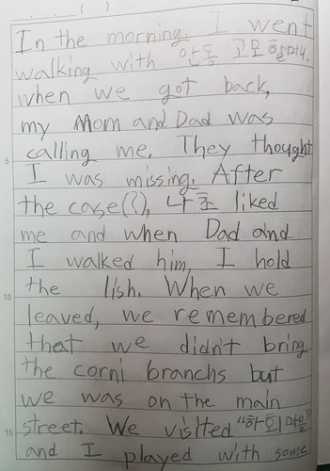 ( )
In the morning, I went
walking with 안동 고모 할머니.
when we got back,
my Mom and Dad was
calling me. They thought
5
I was missing. After
the case(?), 나초 liked
me and when Dad and
I walked him, I hold
10
the lish. When we
leaved, we remembered
that we didn't bring
the corni branchs but
we was on the main
15
street. We visited "하회마을"
and I played with some